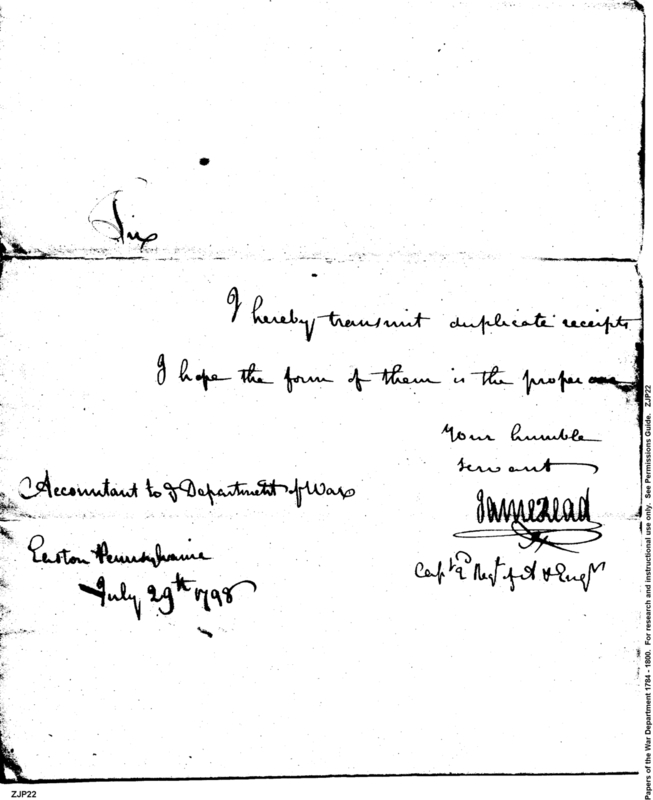 Sir
I hereby transmit duplicate receipts
I hope the form of them is the proper one
Your humble
servant
James Read
Capt 2d Regt of A & Engrs
Accountant to ye Department of War
Easton Pennsylvania
July 29th 1798
ZJP22
Papers of the War Department 1784 - 1800. For research and instructional use only. See Permissions Guide. ZJP22